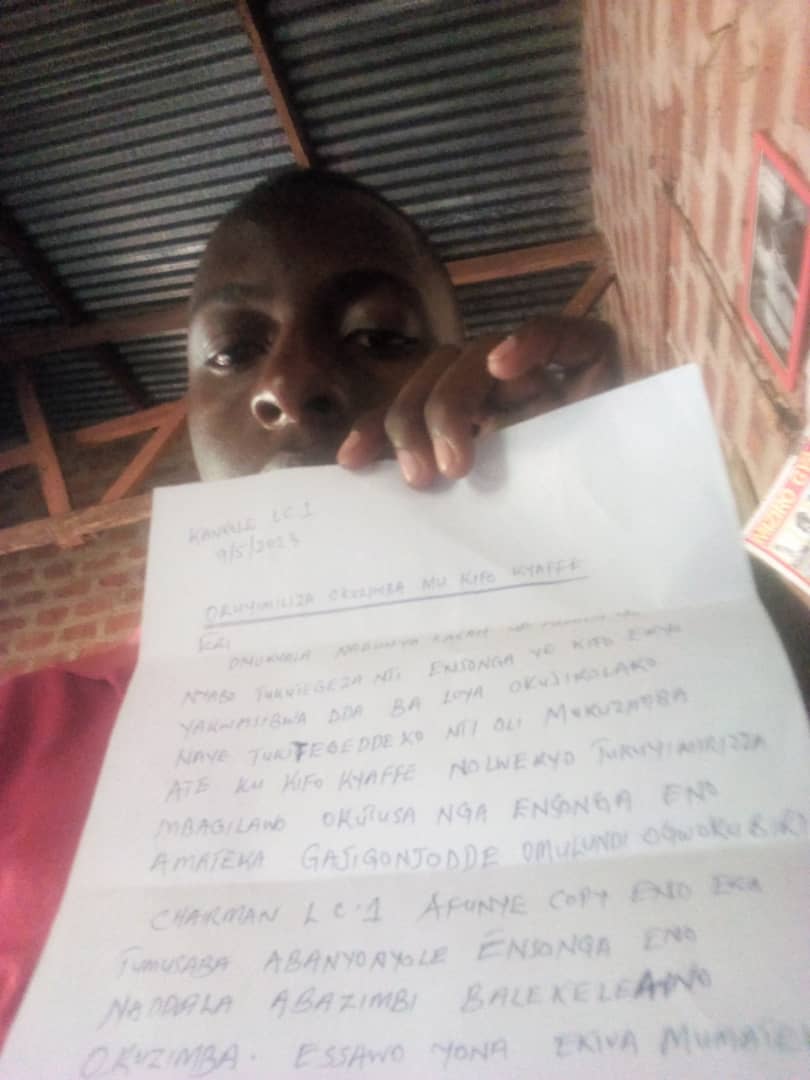 LC 1
9/5/2023
OKUYIMILIZA OKUZIMBA MU KIFO KYAFFE
OMUKYALA
NYABO TUKUTEGEZA NTI ENSONGA YE KIFO EKYO
YAKWASIBWA DDA BA LOYA OKUJIKOLAKO
NAYE TUKITEGEDDEKO NTI OLI MUKUZIMBA
ATE KU KIFO KYAFFE NOLWEKYO TUKUYIMIRIZZA
MBAGILAWO OKUTUSA NGA ENSONGA ENO
AMATEKA GAJIGONJODDE OMULUNDI OGWOKUBIRI
CHAIRMAN LC.1 AFUNYE COPY ENO ERA
TUMUSABA ENSONGA ENO
NADDALA ABAZIMBI
OKUZIMBA. ESSAWO YONA EKIVA